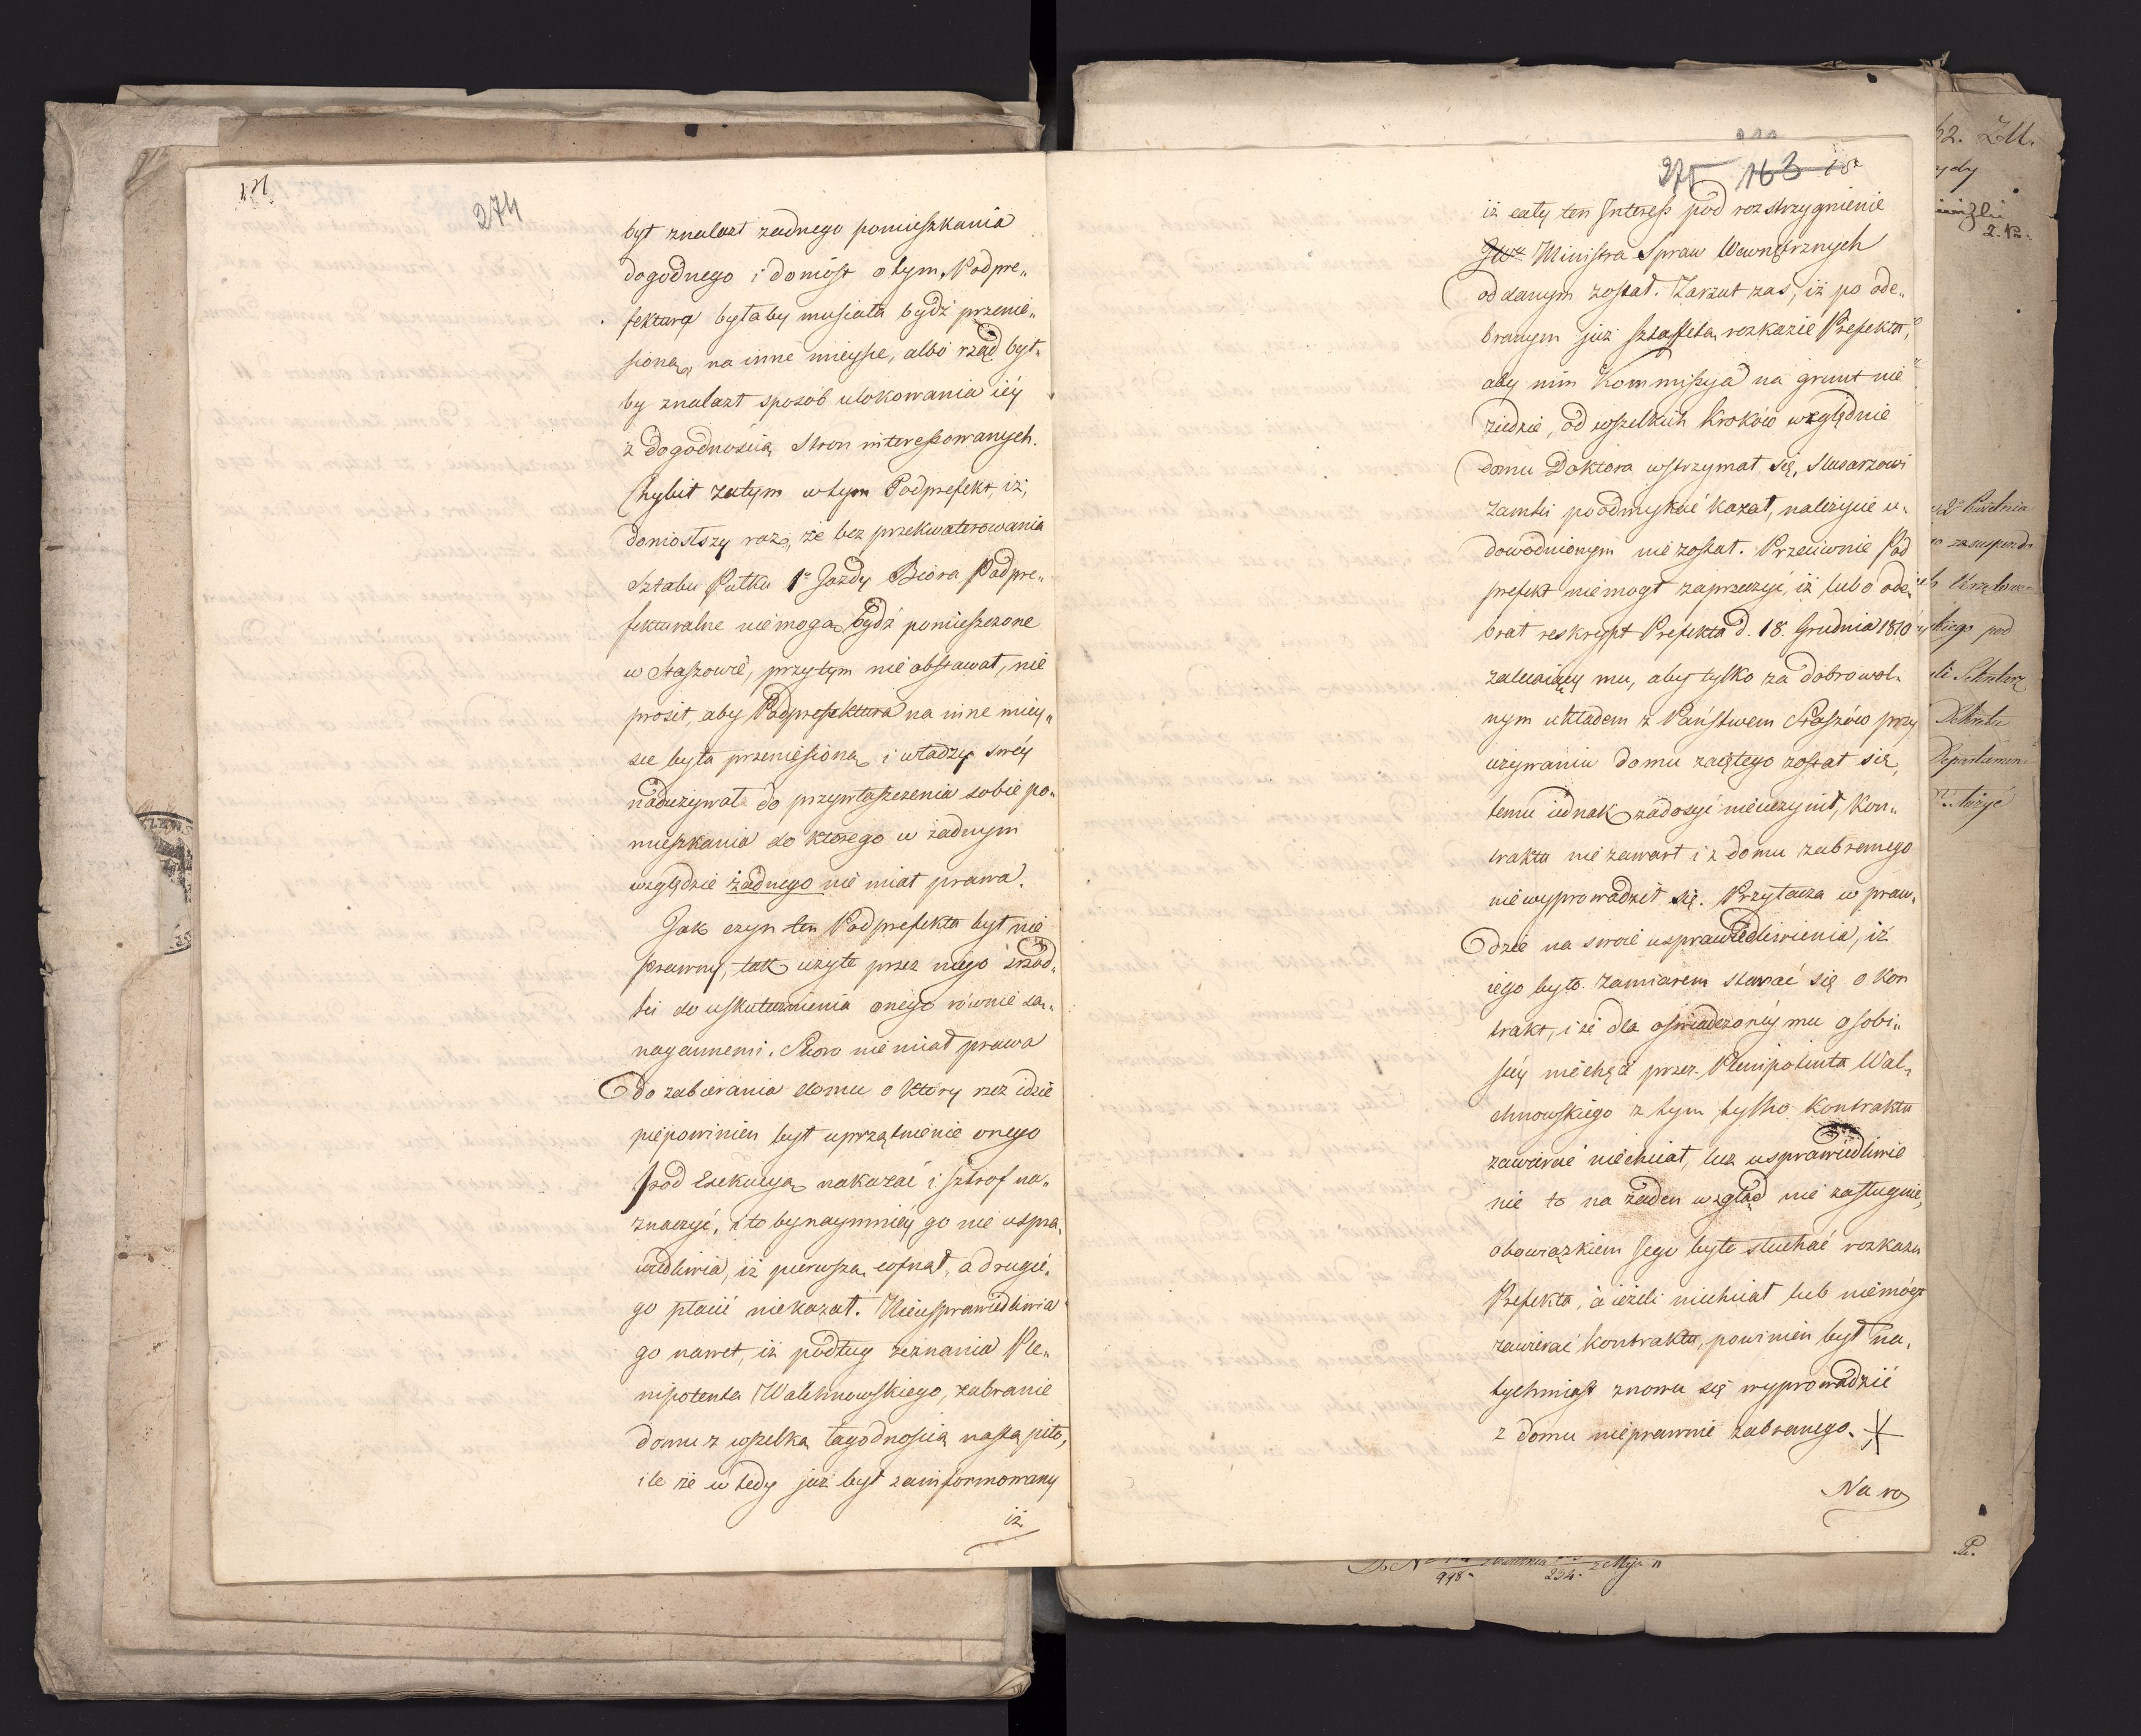 274
był znalazł żadnego pomieszkania
dogodnego i doniósł o tym, Podpre„
fektura byłaby musiała bydź przenie„
siona, na inne mieysce, albo rząd był„
by znalazł sposób ulokowania iéy
z dogodnością stron interessowanych.
Chybił zatym w tym Podprefekt, iż,
doniosłszy raz, że bez przekwaterowania
Sztabu Pułku 1o Jazdy Biora Podpre„
fekturalne nie mogą bydź pomieszczone
w Staszowie, przytym nie obstawał, nie
prosił, aby Podprefektura na inne miey„
sce była przeniesiona, i władzy swéy
nadużywał do przywłaszczenia sobie po„
mieszkania do którego w żadnym
względzie żadnego nie miał prawa.
Jak czyn ten Podprefekta był nie
prawny, tak użyte przez niego śrzod„
ki do uskutecznienia onego równie są„
nagannemi. Skoro nie miał prawa
do zabierania domu o który rzecz idzie
niepowinien był uprzątnienie onego
pod Exekucyą nakazać i sztrof na„
znaczyć, i to bynaymniéy go nie uspra„
wiedliwia, iż pierwszą cofnął, a drugie„
go płacić nie kazał. Nieusprawiedliwia
go nawet, iż podług zeznania Ple„
nipotenta Walchnowskiego, zabranie
domu z wszelką łagodnością nastąpiło,
ile że wtedy już był zainformowany
iż
275 163
iż cały ten Interess pod rozstrzygnienie
JWo Ministra Spraw Wewnętrznych
oddanym został. Zarzut zaś, iż po ode„
branym już sztafetą rozkazie Prefekta,
aby nim Kommissya na grunt nie
ziedzie, od wszelkich kroków względnie
domu Doktora wstrzymał się, Slusarzowi
zamki poodmykać kazał, należycie u„
dowodnionym nie został. Przeciwnie Pod
prefekt niemogł zaprzeczyć, iż lubo ode„
brał reskrypt Prefekta d. 18. Grudnia 1810
zalecaiący mu, aby tylko za dobrowol„
nym układem z Państwem Staszów przy
używaniu domu zaiętego został się,
temu iednak zadosyć nieuczynił, kon„
traktu nie zawarł i z domu zabranego
niewyprowadził się. Przytacza w praw„
dzie na swoie usprawiedliwienia, iż
iego było zamiarem starać się o kon
trakt, i że dla oświadczonéy mu osobi„
stéy niechęci przez Plenipotenta Wal„
chnowskiego z tym tylko kontraktu
zawierać niechciał, lecz usprawiedliwie
nie to na żaden wzgląd nie zasługuie,
obowiązkiem Jego było słuchać rozkazu
Prefekta, a ieżeli niechciał lub niemógł
zawierać kontraktu, powinien był na„
tychmiast znowu się wyprowadzić
z domu nieprawnie zabranego.
Na ro